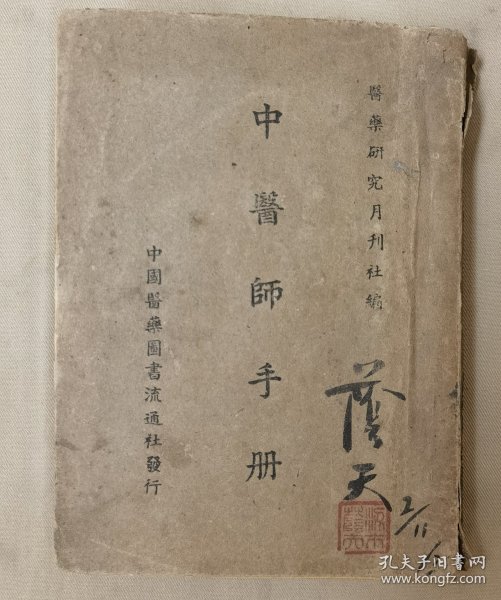 醫藥研究月刊社編
中醫師手册
中國醫藥圖書流通社發行
天
2/11
孔夫子旧书网
www.kongfz.com